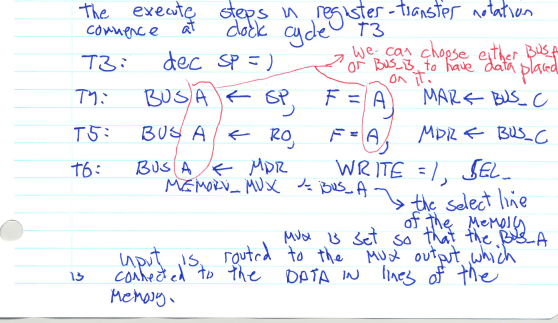 The execute steps in register-transfer notation
commence at clock cycle T3
T3: dec SP = 1
We can choose either BUS_A
or BUS_B to have data placed
on it.
T4: BUS A ← SP, F = A, MAR ← BUS_C
T5: BUS A ← R0, F = A, MDR ← BUS_C
T6: BUS A ← MDR WRITE = 1, SEL_
MEMORY_MUX = BUS_A
the select line
of the Memory
MUX is set so that the BUS_A
input is routed to the MUX output which
is connected to the DATA IN lines of the
Memory.